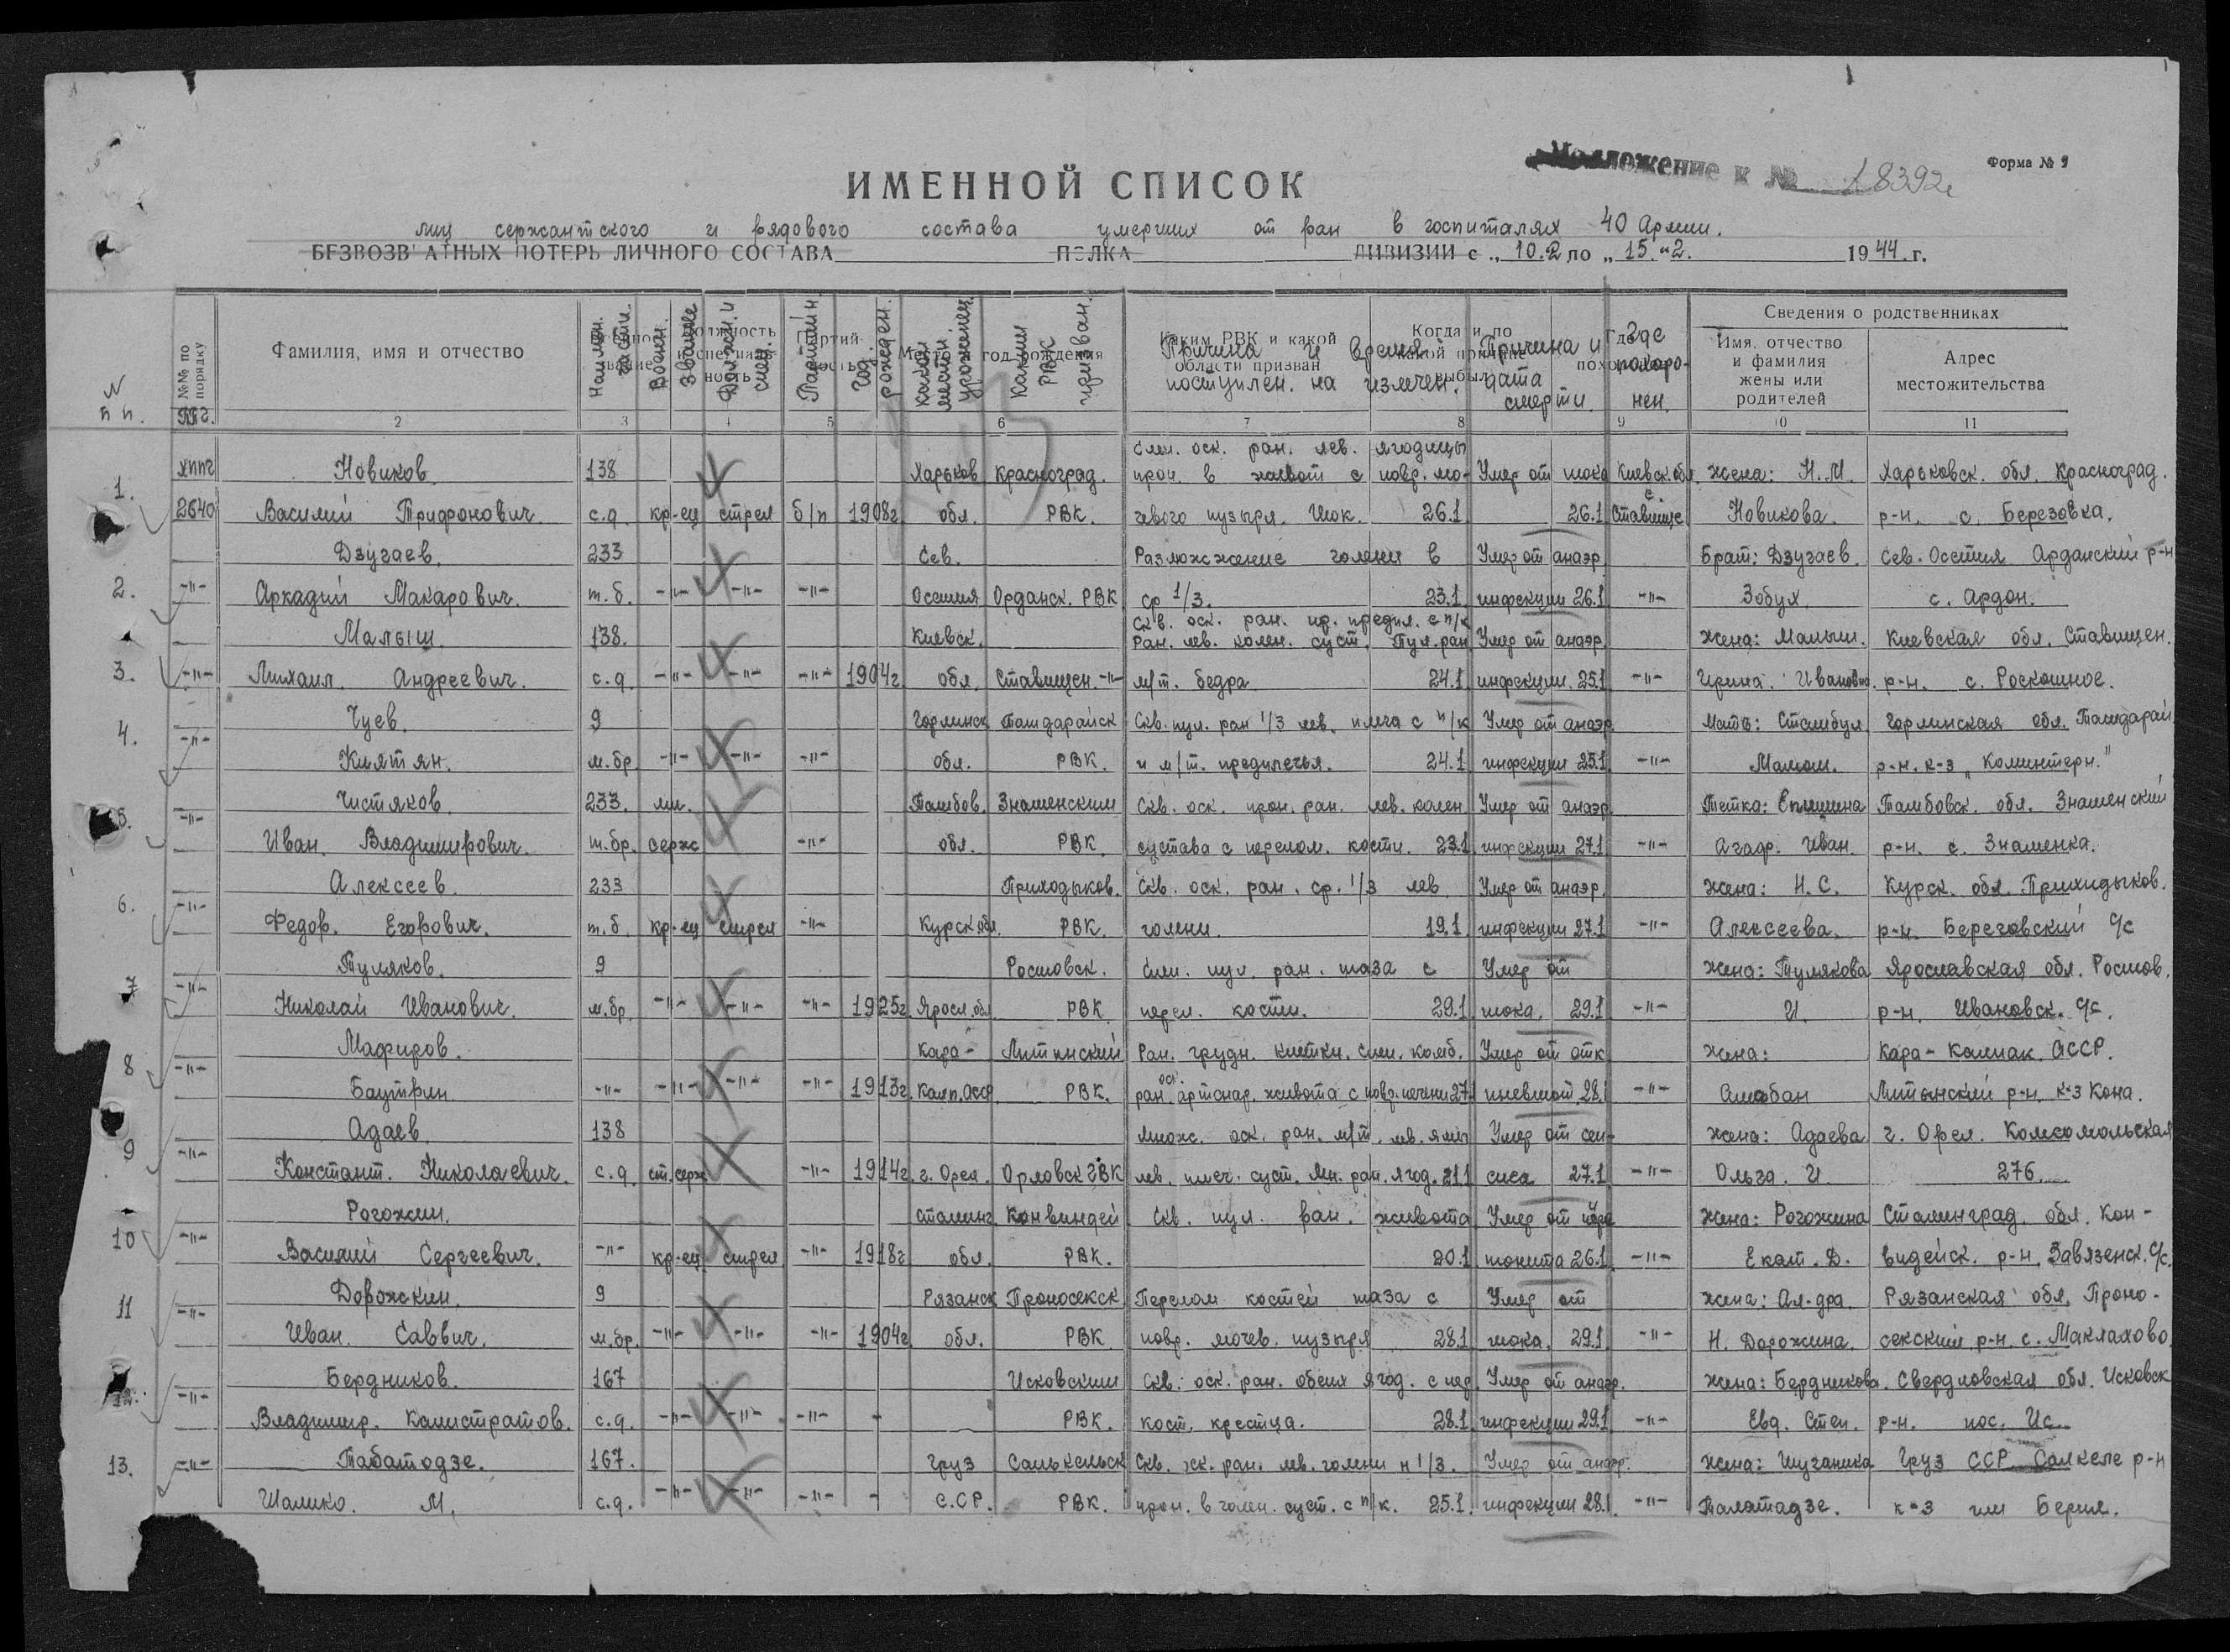 Приложение к № 18392с
Форма № 9
ИМЕННОЙ СПИСОК
лиц сержантского и рядового состава умерших от ран в госпиталях 40 Армии.
БЕЗВОЗВРАТНЫХ ПОТЕРЬ ЛИЧНОГО СОСТАВА ПОЛКА ДИВИЗИИ с „10.2 по „15."2. 1944.г.
Сведения о родственниках
N п п. №№ по порядку Фамилия, имя и отчество Наимен. части. Воен. звание Должн. и спец. Партийн Год рожден. Какой местн уроженец Каким РВК призван. Причина и время поступлен. на излечен. Причина и дата смерти. Где похоро- нен. Имя, отчество и фамилия жены или родителей Адрес местожительства
2 3 4 5 6 7 8 9 10 11
Слеп. оск. ран. лев. ягодицы
1. хппг Новиков. 138 Харьков Красноград. прон. в живот с повр. мо- Умер от шока Киевск. обл. Жена: Н.М. Харьковск. обл. Красноград.
2640 Василий Трифонович. с.д. кр-ец стрел б/п 1908г обл. РВК. чевого пузыря. Шок. 26.1 26.1 с Ставище Новикова. р-н. с. Березовка.
Дзугаев. 233 Сев. Размозжение голени в Умер от анаэр. Брат: Дзугаев. Сев. Осетия Ардански р-н
2. -"- Аркадий Макарович. т.б. -"- -"- -"- Осетия Орданск. РВК ср 1/3. 23.1 инфекции 26.1 -"- Зобул. с. Ардон.
Скв. оск. ран. пр. предпл. с п/к
Малыш. 138. Киевск. Ран. лев. колен. суст. Пул. ран Умер от анаэр. Жена: Малыш. Киевская обл. Ставищен.
3. -"- Михаил. Андреевич. с.д. -"- -"- -"- 1904г. обл. Ставищен. -"- м/т. бедра 24.1 инфекции. 25.1 -"- Ирина. Ивановна. р-н. с. Роскошное.
4. -"- Чуев. 9 Горлинск Ташдарайск Скв. пул. ран 1/3 лев. плеча с п/к Умер от анаэр. Мать: Стамбул. Горлинская обл. Ташдарай
Киятян. м.бр. -"- -"- -"- обл. РВК. и м/т. предплечья. 24.1 инфекции 25.1 -"- Мамош. р-н. к-з „Коминтерн."
5. -"- Чистяков. 233. мл. Тамбов. Знаменским Скв. оск. прон. ран. лев. колен Умер от анаэр. Тетка: Епишина Тамбовск. обл. Знаменский
Иван. Владимирович. т.бр. серж -"- обл. РВК. сустава с перелом. кости. 23.1 инфекции 27.1 -"- Агафр. Иван. р-н. с. Знаменка.
Алексеев. 233 Приходьков. Скв. оск. ран. ср. 1/3 лев Умер от анаэр. Жена: Н.С. Курск. обл. Прихидьков.
6. -"- Федор. Егорович. т.б. кр-ец стрел -"- Курск обл. РВК. голени. 19.1 инфекции 27.1 -"- Алексеева. р-н. Береговский С/с
Туляков. 9 Ростовск. Слеп. пул. ран. таза с Умер от Жена: Тулякова Ярославская обл. Ростов.
7 -"- Николай Иванович. м.бр. -"- -"- -"- 1925г. Яросл. обл. РВК перел. кости. 29.1 шока. 29.1 -"- И. р-н. Ивановск. С/с.
8 -"- Мафиров. Кара- Литинский Ран. грудн. клетки. слеп. комб. Умер от отк Жена: Кара-Калпак. АССР.
Баутрин -"- -"- -"- -"- 1913г. Калп. Асср. РВК. оск. ран. артонар. живота с повр. печени 27.1 пневмот. 28.1 -"- Амабан Литинский р-н. к-з Кона.
Адаев. 138 Множ. оск. ран. м/т. лев. ямы Умер от сеп- Жена: Адаева г. Орел. Комсомольская
9 -"- Констант. Николаевич. с.д. ст. серж -"- 1914г. г. Орел. Орловск ГВК лев. плеч. суст. Мн. ран. ягод. 21.1 сиса 27.1 -"- Ольга. И. 276.
Рогожин. Сталинг. Конвиндей Скв. пул. ран. живота Умер от пери Жена: Рогожина Сталинград. обл. Кон-
10 -"- Василий Сергеевич. -"- кр-ец стрел -"- 1918г обл. РВК. 20.1 тонита 26.1 -"- Екат. Д. видейск. р-н. Завязенск. С/с.
Дорожкин. 9 Рязанск Проносекск Перелом костей таза с Умер от Жена: Ал-дра. Рязанская обл. Проно-
11 -"- Иван. Саввич. м.бр. -"- -"- -"- 1904г. обл. РВК повр. мочев. пузыря 28.1 шока. 29.1 -"- Н. Дорожина. секский р-н. с. Маклахово.
Бердников. 167 Исковским Скв. оск. ран. обеих ягод. с пер. Умер от анаэр. Жена: Бердникова. Свердловская обл. Исковск
12. -"- Владимир. Калистратов. с.д. -"- -"- -"- - РВК. кост. крестца. 28.1 инфекции 29.1 -"- Евд. Степ. р-н. пос. Ис.
13. -"- Табатодзе. 167. Груз Салькельск Скв. оск. ран. лев. голени н 1/3. Умер от анаэр. Жена: Шуганика Груз ССР Салкеле р-н
Шалико. М. с.д. -"- -"- -"- - С.СР. РВК. прон. в голен. суст. с п/к. 25.1. инфекции 28.1. -"- Талатадзе. к-з им Берия.